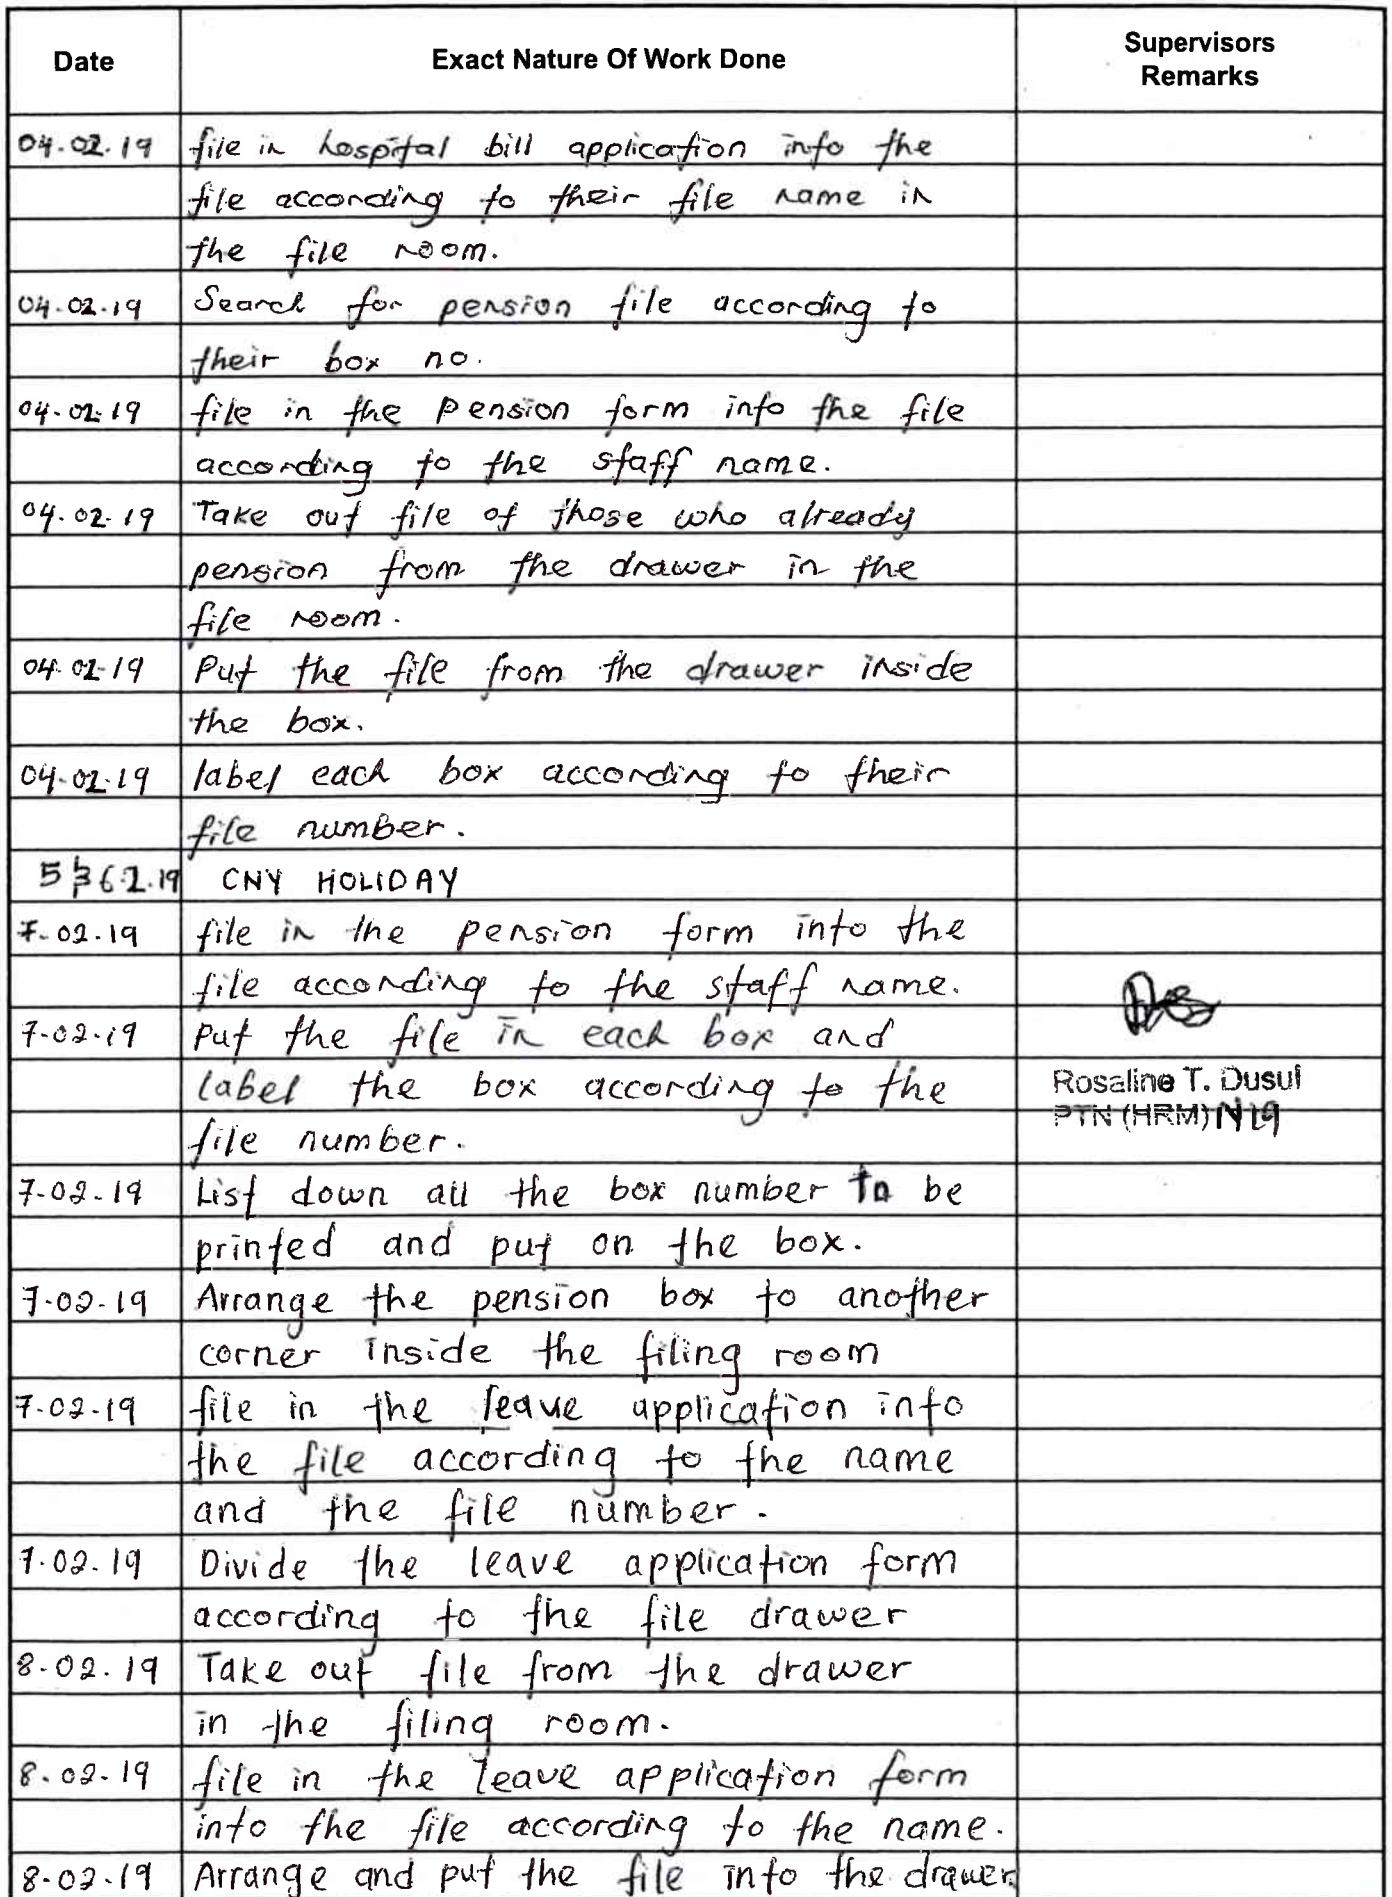 Date Exact Nature Of Work Done Supervisors
Remarks
04.02.19 file in hospital bill application into the
file according to their file name in
the file room.
04.02.19 Search for pension file according to
their box no.
04.02.19 file in the pension form into the file
according to the staff name.
04.02.19 Take out file of those who already
pension from the drawer in the
file room.
04.02.19 Put the file from the drawer inside
the box.
04.02.19 label each box according to their
file number.
5 & 6.2.19 CNY HOLIDAY
7.02.19 file in the pension form into the
file according to the staff name.
7.02.19 Put the file in each box and
label the box according to the Rosaline T. Dusui
file number. PTN (HRM) N19
7.02.19 List down all the box number to be
printed and put on the box.
7.02.19 Arrange the pension box to another
corner inside the filing room
7.02.19 file in the leave application into
the file according to the name
and the file number.
7.02.19 Divide the leave application form
according to the file drawer
8.02.19 Take out file from the drawer
in the filing room.
8.02.19 file in the leave application form
into the file according to the name.
8.02.19 Arrange and put the file into the drawer.